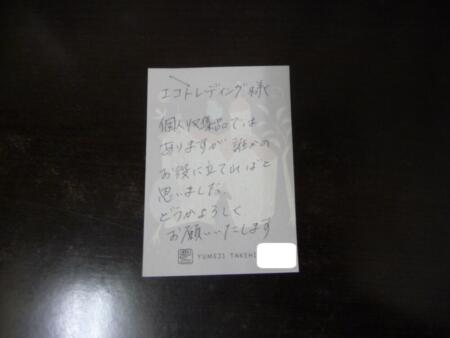 エコトレディング様
個人収集品では
ありますが誰かの
お役に立てればと
思いました。
どうかよろしく
お願いいたします
YUMEJI TAKEHI